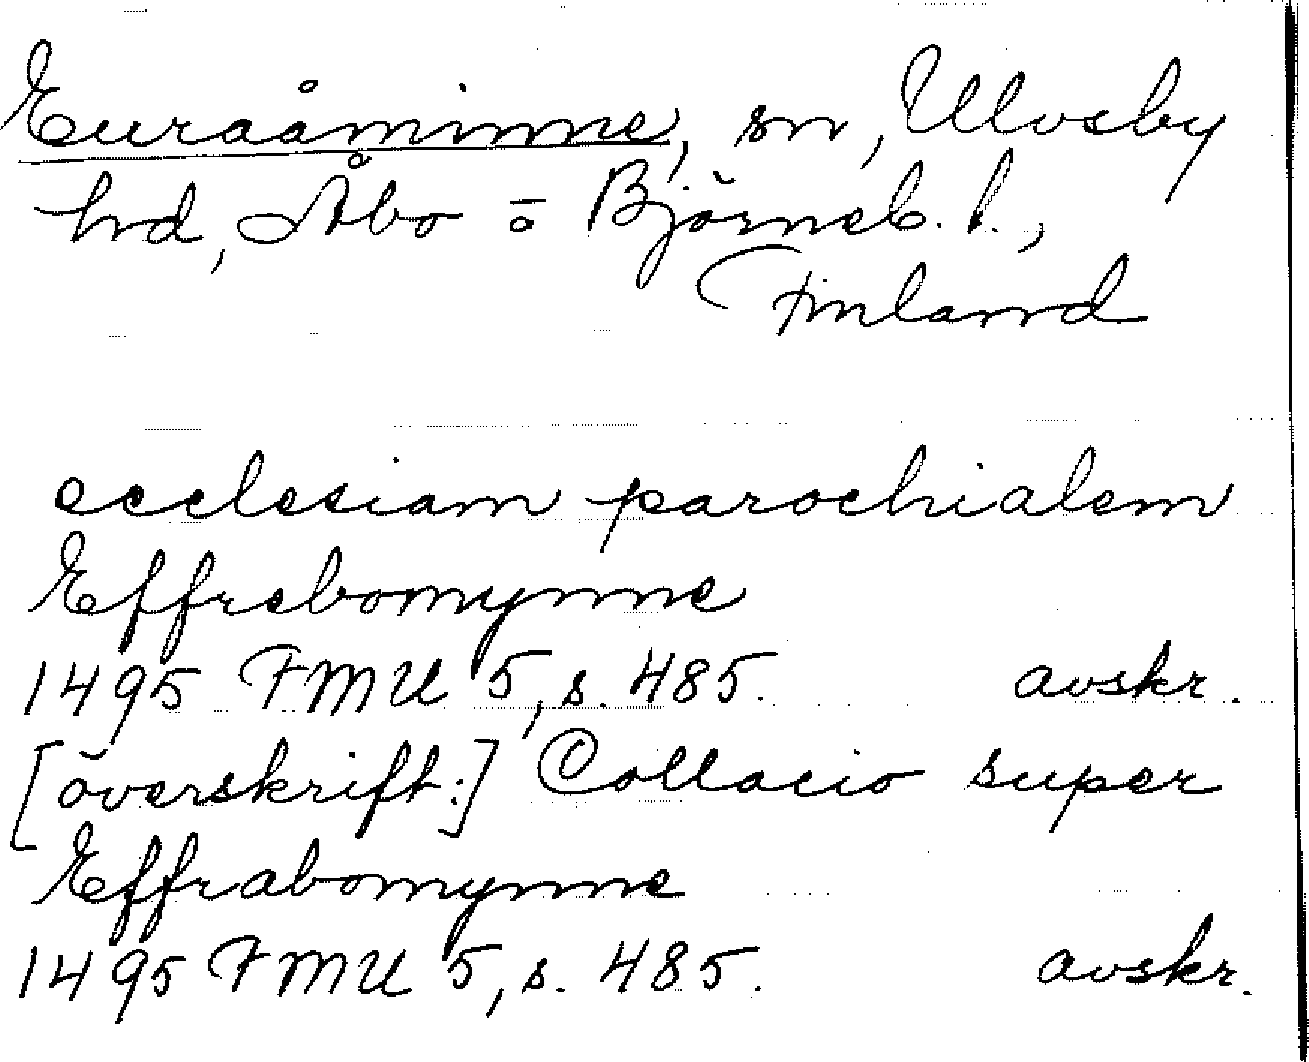 Euraåminne, sn, Ulvsby
hd, Åbo o Björneb. l.,
Finland
ecclesiam parochialem
Effrebomynne
1495 FMU 5, s. 485. avskr.
[överskrift:] Collacio super
Effrabomynne
1495 FMU 5, s. 485. avskr.